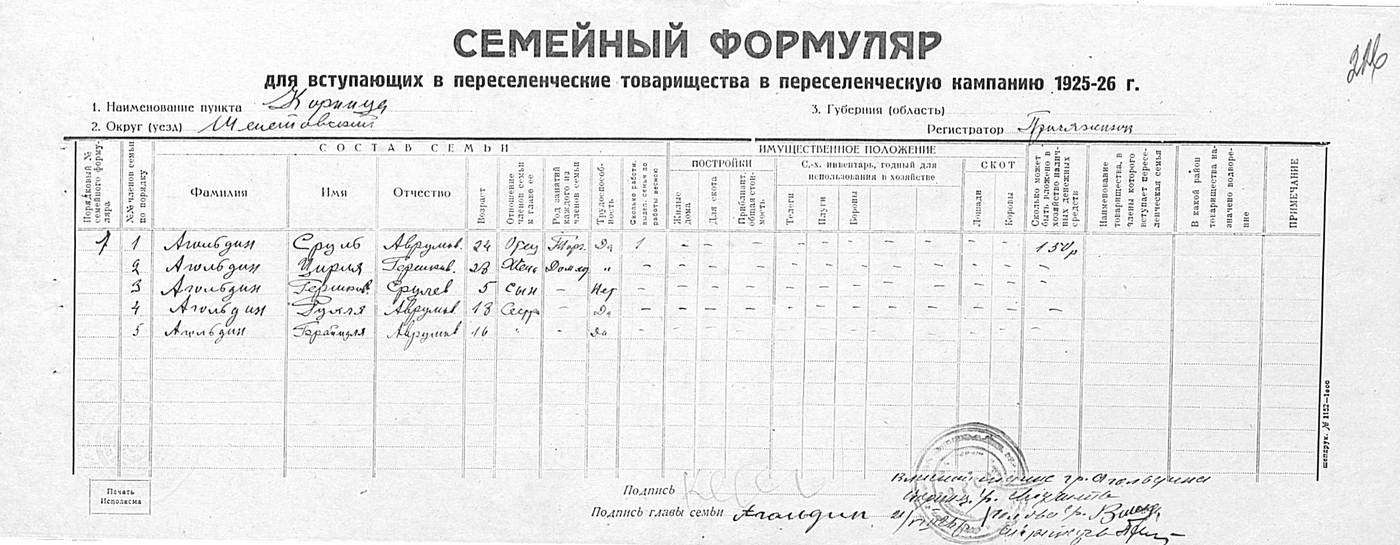 СЕМЕЙНЫЙ ФОРМУЛЯР
для вступающих в переселенческие товарищества в переселенческую кампанию 1925-26 г.
1. Наименование пункта Корница
3. Губерния (область)
2. Округ (уезд) Шепетовский
Регистратор
СОСТАВ СЕМЬИ
ИМУЩЕСТВЕННОЕ ПОЛОЖЕНИЕ
Порядковый № семейного формуляра
№№ членов семьи по порядку
Фамилия
Имя
Отчество
Возраст
Отношение членов семьи к главе ее
Род занятий каждого из членов семьи
Трудоспособность
Сколько работн. выдел. семья до работы весною
ПОСТРОЙКИ
Жилые дома
Для скота
Приблизит. общая стоимость
С.-х. инвентарь, годный для использования в хозяйстве
Телеги
Плуги
Бороны
СКОТ
Лошади
Коровы
Сколько может быть вложено в хозяйство наличных денежных средств
Наименование товарищества, в члены которого вступает переселенческая семья
В какой район товарищества назначено подворение
ПРИМЕЧАНИЕ
1 Агольдин Сруль Аврумов. 24 Отец Торг. Да 1 – – – – – – – – – – 150р
2 Агольдин Цирля Гершков. 23 Жена Домхоз " – – – – – – – – – – – –
3 Агольдин Гершков. Срулев 5 Сын – Нет – – – – – – – – – – – –
4 Агольдин Рухля Аврумов 18 Сестра – Да – – – – – – – – – – – –
5 Агольдин Аврумов 16 " – Да – – – – – – – – – – – –
Печать Исполкома
Подпись
Подпись главы семьи Агольдин